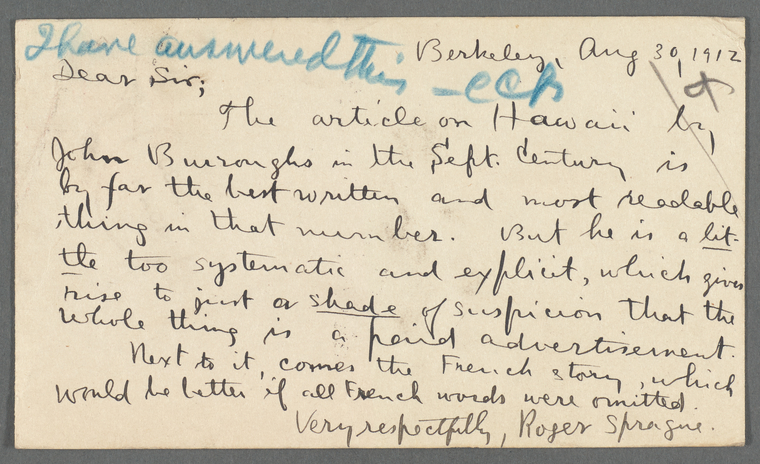 I have answered this - CCB
Berkeley, Aug 30, 1912
Dear Sir;
The article on Hawaii by
John Burroughs in the Sept. Century is
by far the best written and most readable
thing in that number. But he is a lit-
tle too systematic and explicit, which gives
rise to just a shade of suspicion that the
whole thing is a paid advertisement.
Next to it, comes the French story, which
would be better if all French words were omitted.
Very respectfully, Roger Sprague.